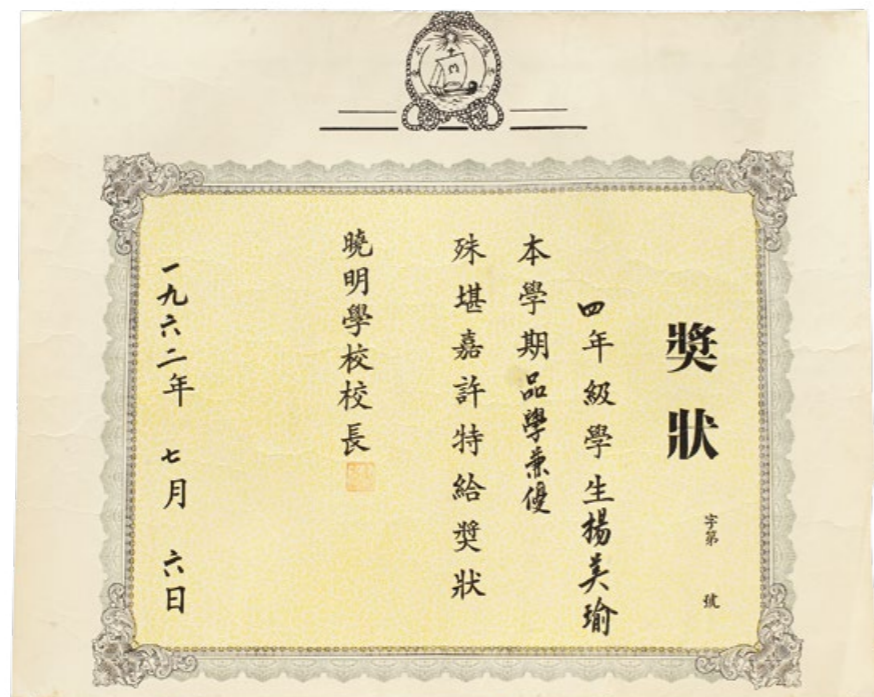 獎狀
字第 號
四年級學生楊美瑜
本學期品學兼優
殊堪嘉許特給奬狀
曉明學校校長
一九六二年 七月 六日